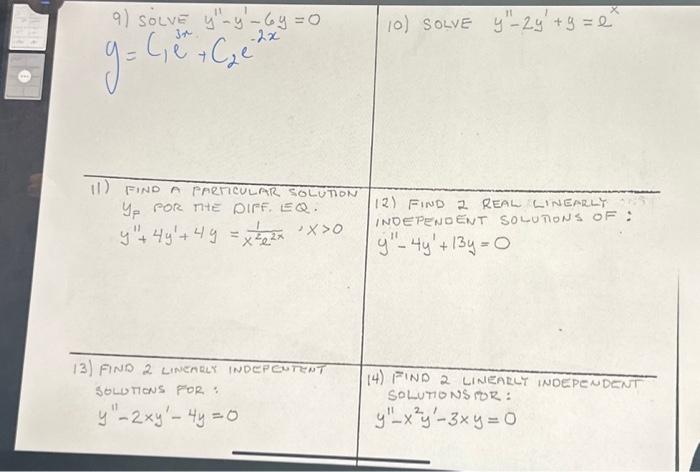 9) SOLVE y"-y'-6y=0
y = C₁e³ˣ + C₂e⁻²ˣ
10) SOLVE y"-2y'+y = eˣ
11) FIND A PARTICULAR SOLUTION
yₚ FOR THE DIFF. EQ.
y"+4y'+4y = 1/(x²e²ˣ), x>0
12) FIND 2 REAL LINEARLY
INDEPENDENT SOLUTIONS OF :
y"-4y'+13y=0
13) FIND 2 LINEARLY INDEPENTENT
SOLUTIONS FOR :
y"-2xy'-4y=0
14) FIND 2 LINEARLY INDEPENDENT
SOLUTIONS FOR :
y"-x²y'-3xy=0